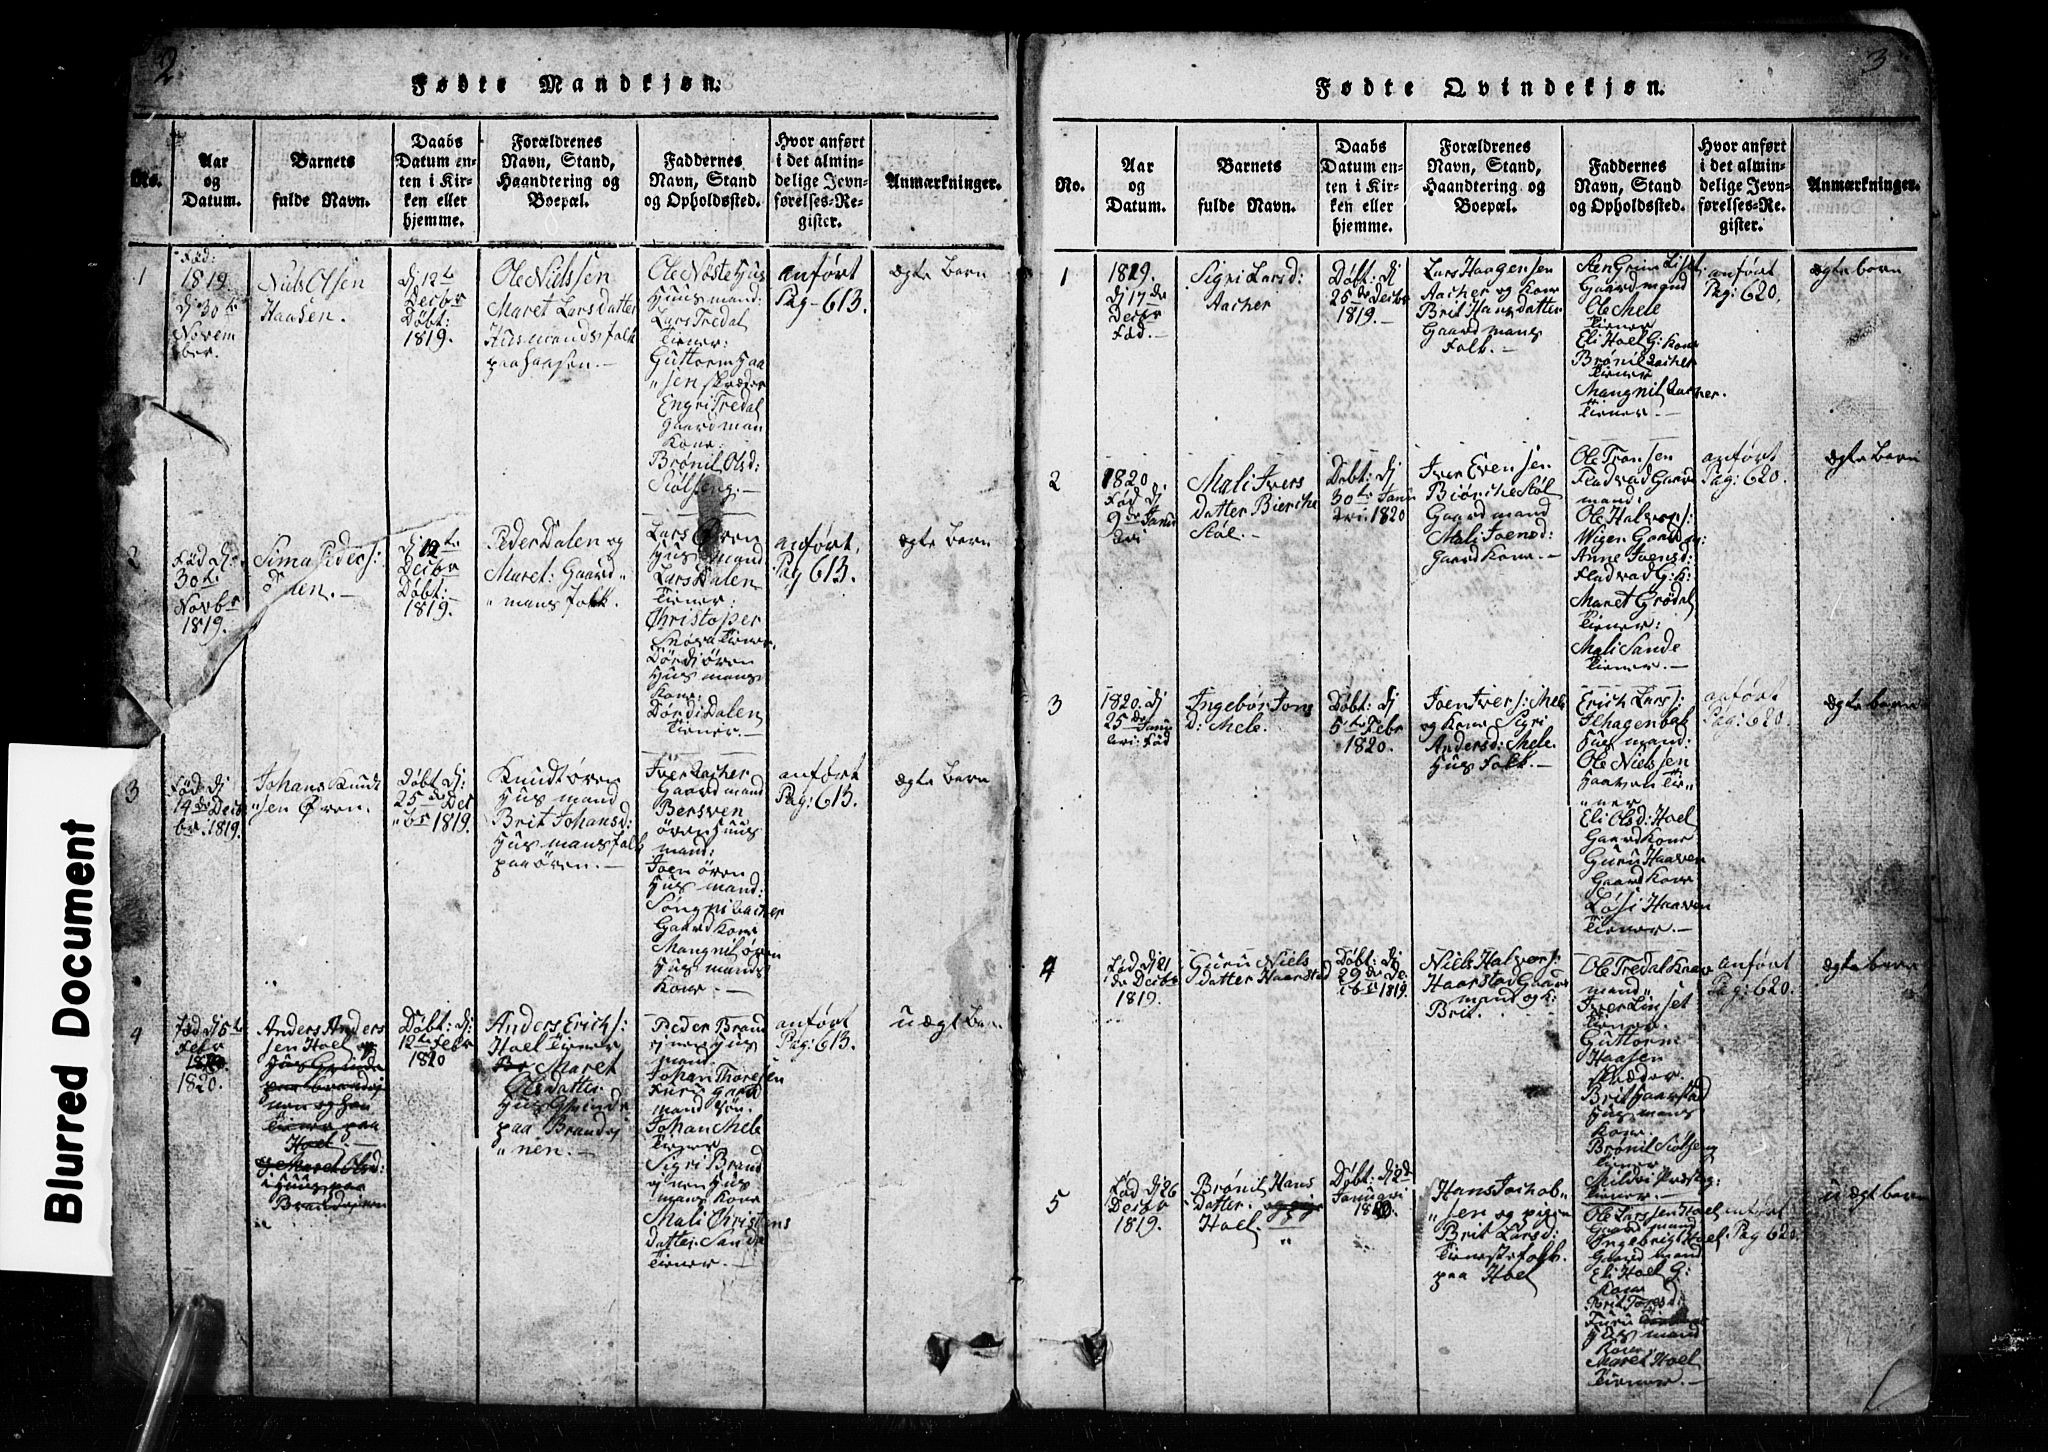 2
Fødte Mandkjøn.
No.
Aar
og
Datum.
Barnets
fulde Navn.
Daabs
Datum en-
ten i Kir-
ken eller
hjemme.
Forældrenes
Navn, Stand,
Haandtering og
Boepæl.
Faddernes
Navn, Stand
og Opholdssted.
Hvor anført
i det almin-
delige Jevn-
førelses-Re-
gister.
Anmærkninger.
1
Fød:
1819
Dj 30te
Novem
ber.
Niels Olsen
Haasen.
Dj 12te
Decbr
Døbt:
1819.
Ole Nielssen
Maret Larsdatter
Husmandsfolk
paa Haasen.
Ole Nøste Hus
Huus mand:
Lars Tredal
Tiener:
Guttorm Haa
"sen skræder
Engri Tredal
Gaardman
Kone:
Brønil Olsd:
Stølseng.
anført
Pag 613.
ægte Barn
2
Fød Dj
30te
Novbr
1819.
Sima Peders:
Dalen.
Dj 12te
Decbr
Døbt:
1819.
Peder Dalen og
Maret: Gaard"
"mans folk.
Lars Øren
Hus mand
Lars Dalen
Tiener:
Christopher
Snøva Tiener
Dørdi øren
Hus mans
Kone:
Dørdi Dalen
Tiener.
anført
Pag 613.
ægte Barn
3
Fød Dj
14de Decb
br. 1819.
Johans Knudt
"sen Øren.
Døbt Dj.
25de Dec
"br 1819.
Knudt øren
Hus mand
Brit Johansd:
Hus mans folk
paa øren.
Iver Aacher
Gaard mand
Bersven
øren Huus
mand:
Joen øren
Hus mand:
Søngns Aacher
Gaard Kone
Mangnil øren
Hus mands
Kone.
anført
Pag: 613.
ægte Barn
4
Fød Dj 5te
Febr
1820.
Anders Anders
sen Hoel
Døbt: Dj:
12te Febr
1820
Anders Erichs:
Hoel Tiener
Maret
Olsdatter
Hus Grunde
paa Brandej
"nen.
Peder Brand
ejnen Hus
mand.
Johan Thoresen
Furu Gaard
mand søn.
Johan Mele
Tiener
Sigri Brand
ejnen Hus
mans Kone
Mali Christens
datter Sande
Tiener.
anført
Pag: 613.
uægt Barn
3
Fødte Qvindekjøn.
No.
Aar
og
Datum.
Barnets
fulde Navn.
Daabs
Datum en-
ten i Kir-
ken eller
hjemme.
Forældrenes
Navn, Stand,
Haandtering og
Boepæl.
Faddernes
Navn, Stand
og Opholdssted.
Hvor anført
i det almin-
delige Jevn-
førelses-Re-
gister.
Anmærkninger.
1
1819.
Dj 17de
Decbr
Fød.
Sigri Larsd:
Aacher
Døbt: Dj
25de Decbr
1819.
Lars Haagensen
Aacher og Kone
Brit Hansdatter
Gaard mans
Folk.
Gaard mand
Ole Mele
Tiener
Eli Hoel G: Kone
Brønil Aacher
Tiener
Mangnil Aacher.
Tiener.
anført
Pag: 620.
ægte barn
2
1820.
Fød Dj
9de Janu
ari
Mali Ivers
datter Bierche
Støl.
Døbt: Dj
30te Janu
ari 1820
Iver Evensen
Biørche Støl
Gaard mand
Mali Joensd:
Gaard Kone.
Ole Tronsen
Fladvad Gaard
mand:
Ole Halvors:
Wigen Gaardm:
Anne Joensd:
Fladvad G: K:
Maret Grødal
Tiener:
Mali Sande
Tiener.
anført
Pag: 620.
ægte Barn
3
1820. Dj
25de Janu
ari: Fød
Ingebør Jons
d: Mele.
Døbt: Dj
5te Febr
1820.
Joen Ivers: Mele
og Kone Sigri
Andersd: Mele.
Hus Folk.
Erich Lars:
Hus mand:
Ole Nielssen
Haaven Tie"
"ner
Eli Olsd: Hoel
Gaard Kone
Guru Haaven
Gaard Kone
Løsi Haaven
Tiener.
anført
Pag: 620
ægte barn
4
Fød Dj 21
de Decbr
1819.
Guru Niels
datter Haarstad
Døbt: Dj
29de De
cbr 1819.
Niels Halvors:
Haarstad Gaard
mand og K:
Brit.
Ole Tredal Kaar
mand"
Iver Linset
Tiener.
Guttorm
Haasen
Skræder.
Brit Haarstad
Hus mans
Kone.
Brønil Stølseng
Tiener
Mildri Presteg:
Tiener.
anført
Pag: 620.
ægte barn
5
Fød Dj 26
Decbr
1819.
Brønil Hans
datter
Hoel.
Døbt: Dj 2d
Januari
1820.
Hans Jachob"
"sen og pigen
Brit Larsd:
Tieneste folk.
paa Hoel
Ole Larssen Hoel
Gaard mand
Ingebrigt Hoel.
Gaard mand
Eli Hoel G:
Kone
Brit Toresd:
Furu
Hus mand
Kone.
Maret Hoel
Tiener.
anført
Pag 620.
uægt barn
Blurred Document